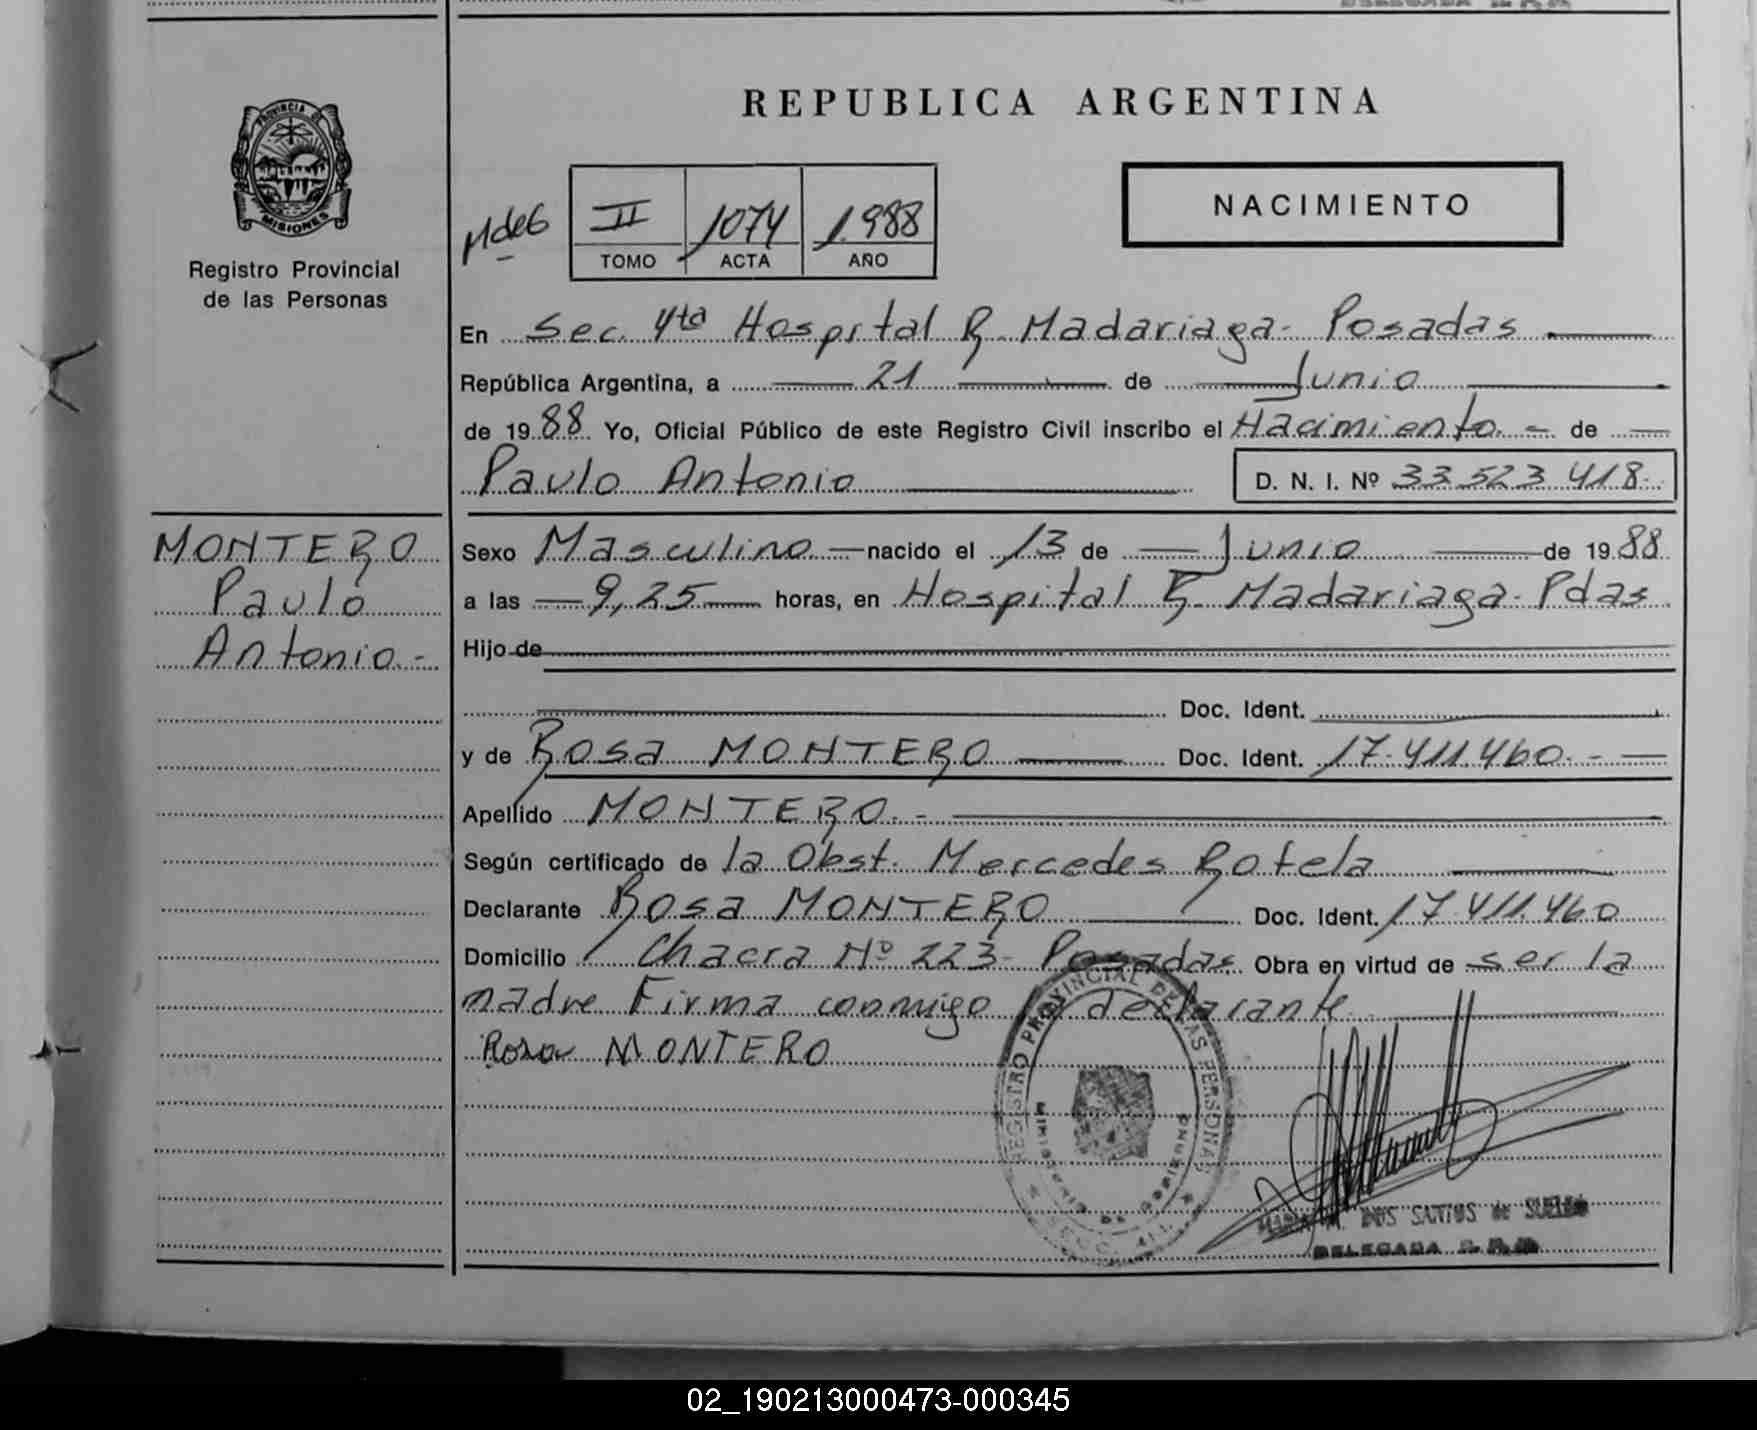 REPUBLICA ARGENTINA
PROVINCIA DE
MISIONES
Registro Provincial
de las Personas
II 1074 1988
TOMO ACTA AÑO
NACIMIENTO
En Sec. 4ta Hospital R. Madariaga- Posadas
República Argentina, a 21 de Junio
de 1988 Yo, Oficial Público de este Registro Civil inscribo el Nacimiento.- de
Paulo Antonio D. N. I. Nº 33.523.418-
MONTERO
Paulo
Antonio.-
Sexo Masculino nacido el 13 de Junio de 1988
a las 9,25 horas, en Hospital R. Madariaga- Pdas
Hijo de
Doc. Ident.
y de Rosa MONTERO Doc. Ident. 17.411.460.-
Apellido MONTERO.-
Según certificado de la Obst. Mercedes Rotela
Declarante Rosa MONTERO Doc. Ident. 17.411.460
Domicilio Chacra Nº 223- Posadas Obra en virtud de ser la
madre Firma conmigo declarante
Rosa MONTERO
REGISTRO PROVINCIAL DE LAS PERSONAS
MINISTERIO DE GOBIERNO
DOS SANTOS de
DELEGADA
02_190213000473-000345